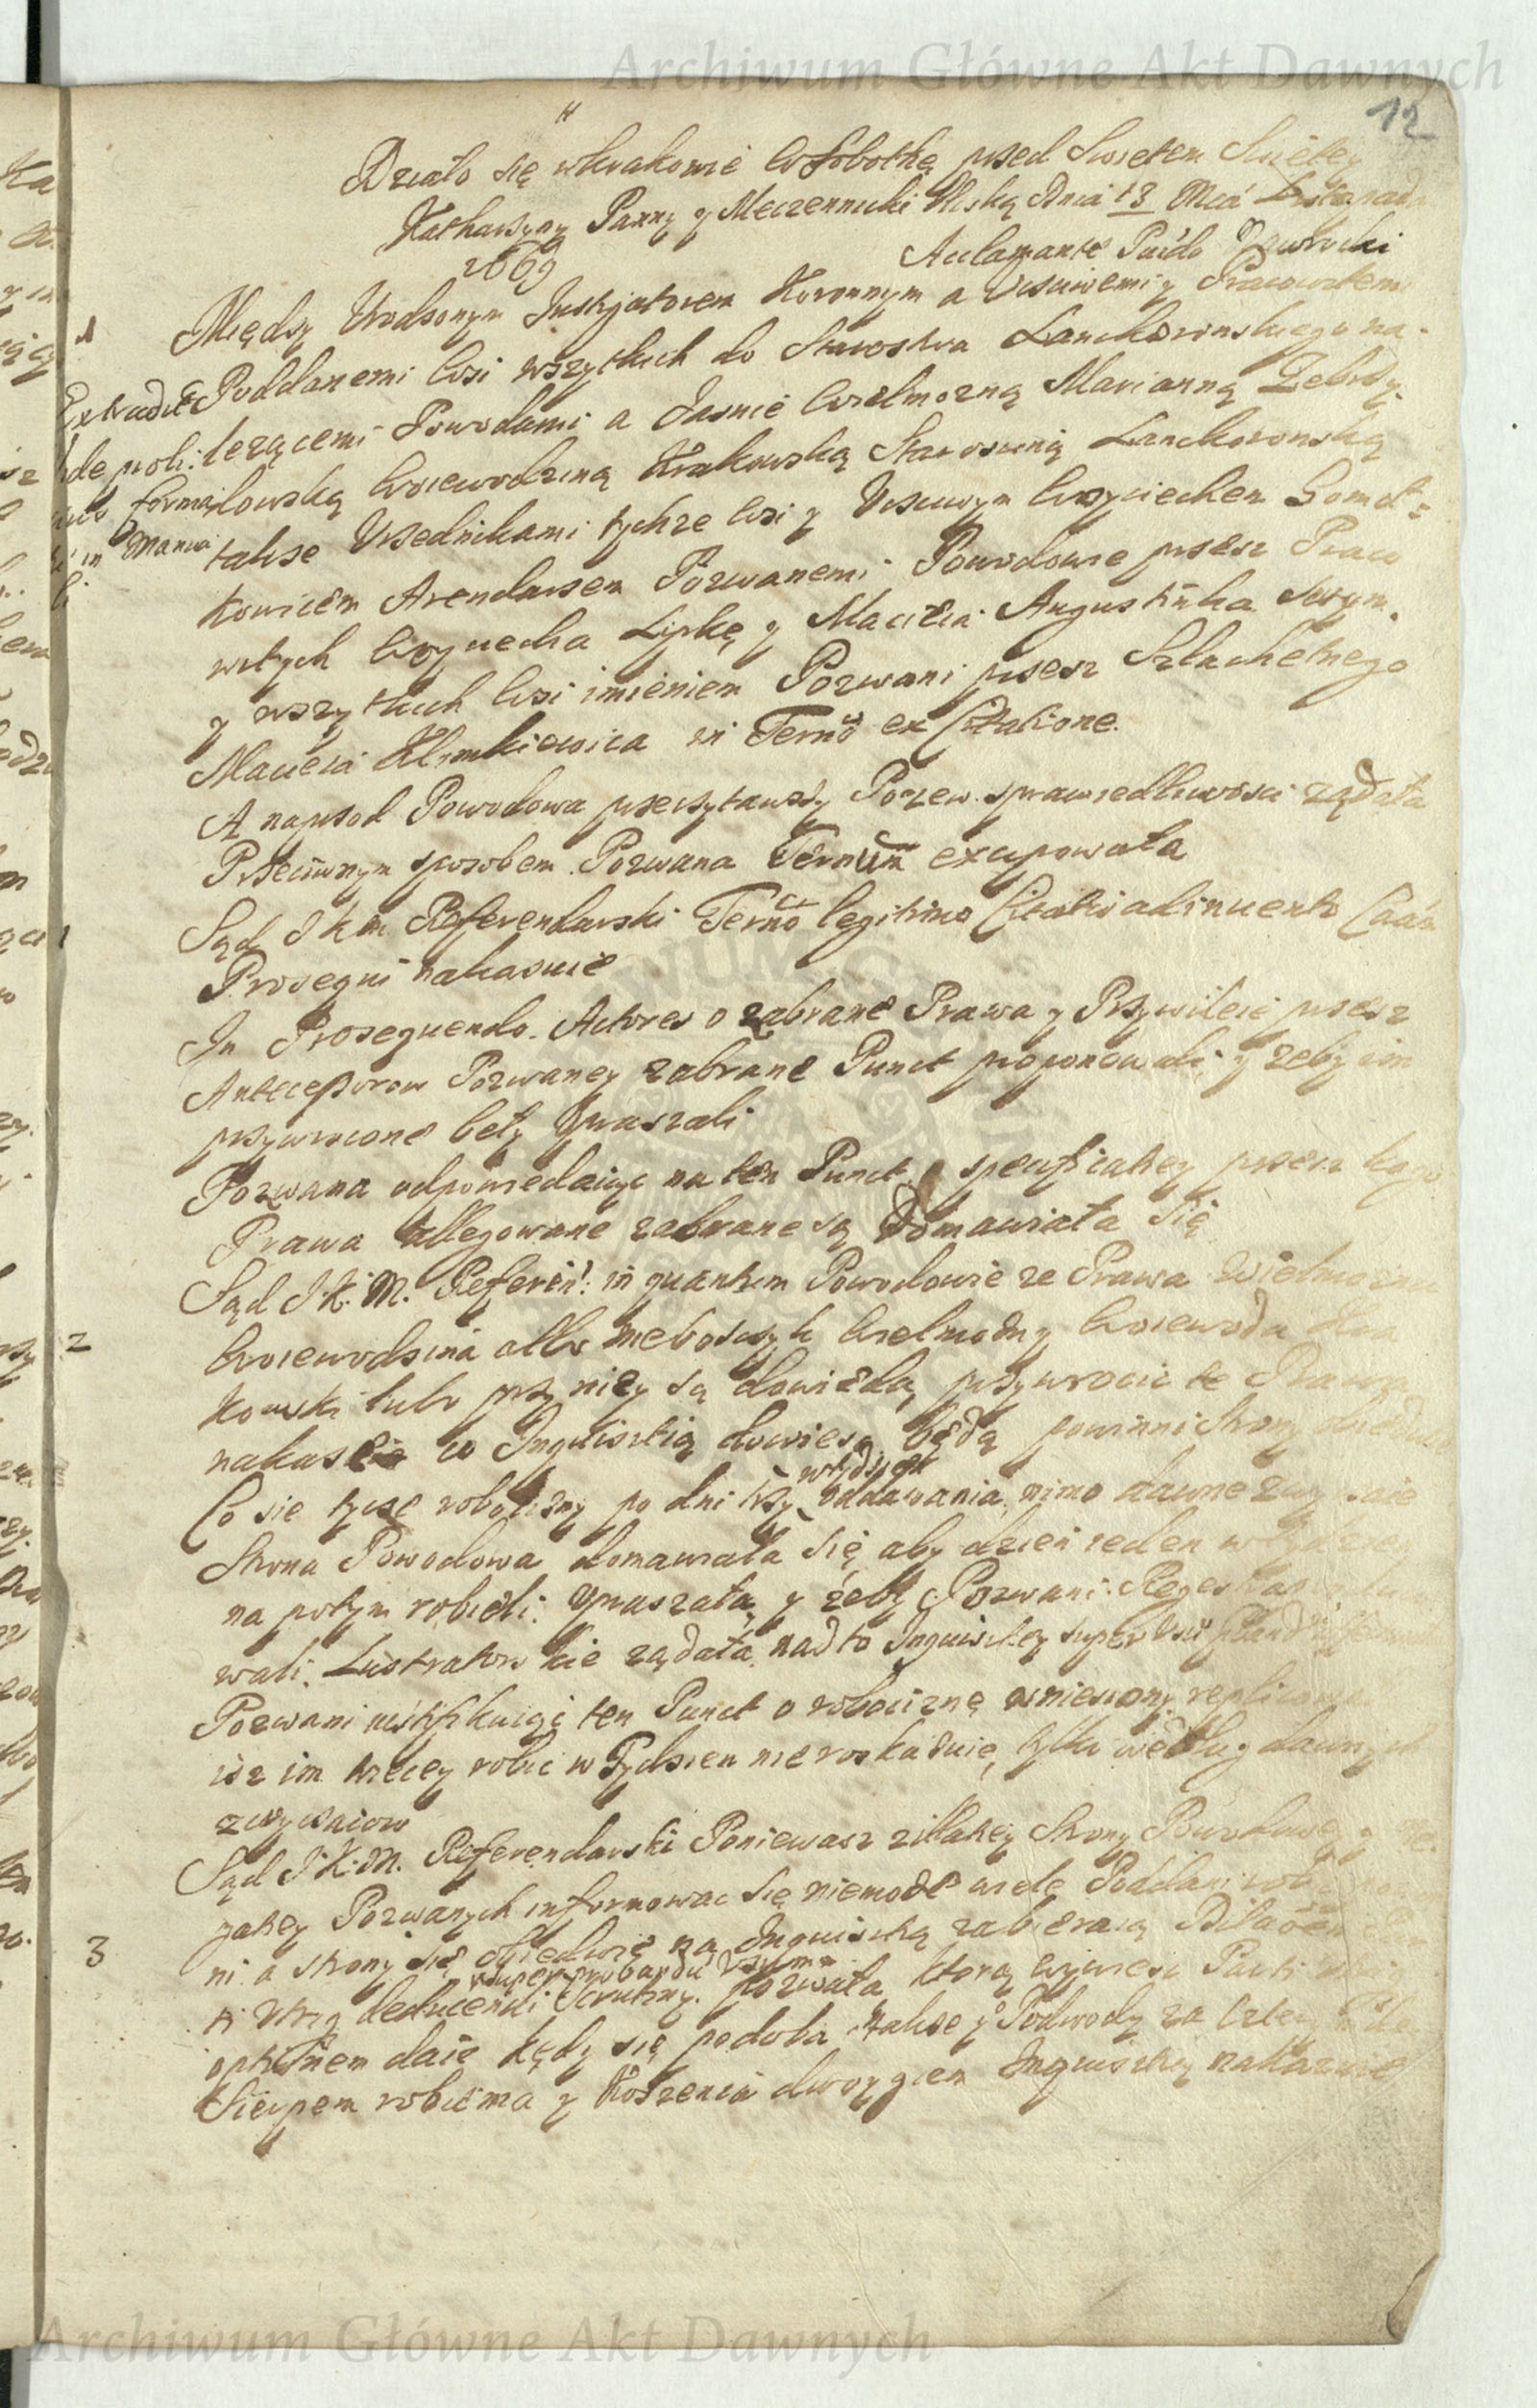 Archiwum Główne Akt Dawnych
12
Działo się w Krakowie w Sobothę przed Swiętem Swiętey
Katharzyny Panny y Męczenniczki Dnia 13 Mca Listopada
1669
Acclamante Paulo
Między Urodzonym Instygatorem Koronnym a Ucciwemi y Pracowitemi
Poddanemi wsi wszytkich do Starostwa Lanckoronskiego na-
Extradit
leżącemi Powodami a Jasnie Wielmożną Marianną Zebrzy-
dowską Woiewodziną Krakowską Starosciną Lanckoronską
także Urzednikami tychze wsi y Ucciwym Woyciechem Gomół-
kowicem Arendarzem Pozwanemi Powodowie przesz Praco
witych Woyciecha Lipkę y Macieia Augustinka swym
y wszytkich wsi imieniem Pozwani przesz Szlachetnego
Macieia Klimkiewica in Termo ex Citatione.
A naprzod Powodowa przeczytawszy Pozew sprawiedliwosci ządała
Przeciwnym sposobem Pozwana Termin excypowała
1
Sąd JKM Referendarski Termo legitimo Citatio adinvento
Prosequi nakazuie
In Prosequendo. Actores o zabrane Prawa y Przywileie przesz
Antecessorow Pozwaney zabrane Punct proponowali y zeby im
przywrocone beły Upraszali
Pozwana odpowiedaiąc na ten Punct specificatiey przesz kogo
Prawa allegowane zabrane są Domawiała się
2
Sąd J.K.M. Referen: in quantum Powodowie ze Prawa Wielmożna
Woiewodzina albo nieboszczyk Wielmożny Woiewoda Kra
kowski lub przy niey są dowiedą przywrocic te Prawa
nakazuie co Inquisitią dowiesc będą powinni Strony obiedwie
Co się tycze robocizny po dni trzy w tydzien oddawania mimo dawne zwyczaie
Strona Powodowa domawiała się aby dzien ieden w tydzien
na potym robieli Upraszała y żeby Pozwani Regestra
wali Lustratorskie ządała nad to Inquisitiey super
Pozwani iustifikuiąc ten Punct o robociznę wniesiony replicowali
isz im więcey robic w Tydzien nie roskazuie, tylko według dawnych
zwyczaiow
Sąd J.K.M. Referendarski Poniewasz z illatiey Strony Powodowey y
gatiey Pozwanych informowac się niemoże wiele Poddani robic
3
ni a strony się obiedwie na Inquisitią zabieraią Dilatiey
deducendi Scrutiny super probandu pozwala ktorą wywiesc
optionem daie kędy się podoba także y o Podwody za
Sierpem robienia y koszenia dworzgiem Inquisitiey nakazuie
Archiwum Główne Akt Dawnych